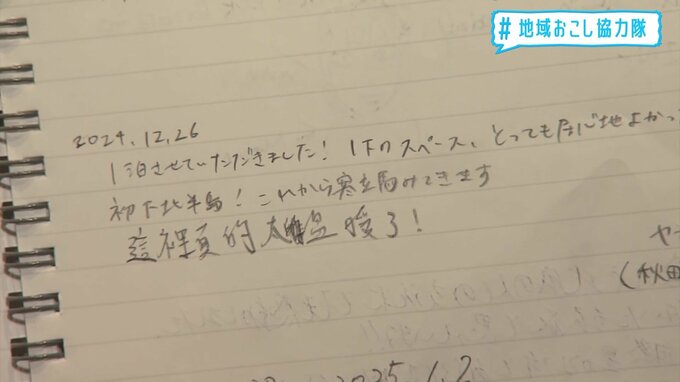 #地域おこし協力隊
2024.12.26
1泊させていただきました! 1Fのスペース、とっても居心地よかっ
初下北半島! これから寒立馬みてきます
這裡真的太溫暖了!
ヤ
(秋田
2025 1.2